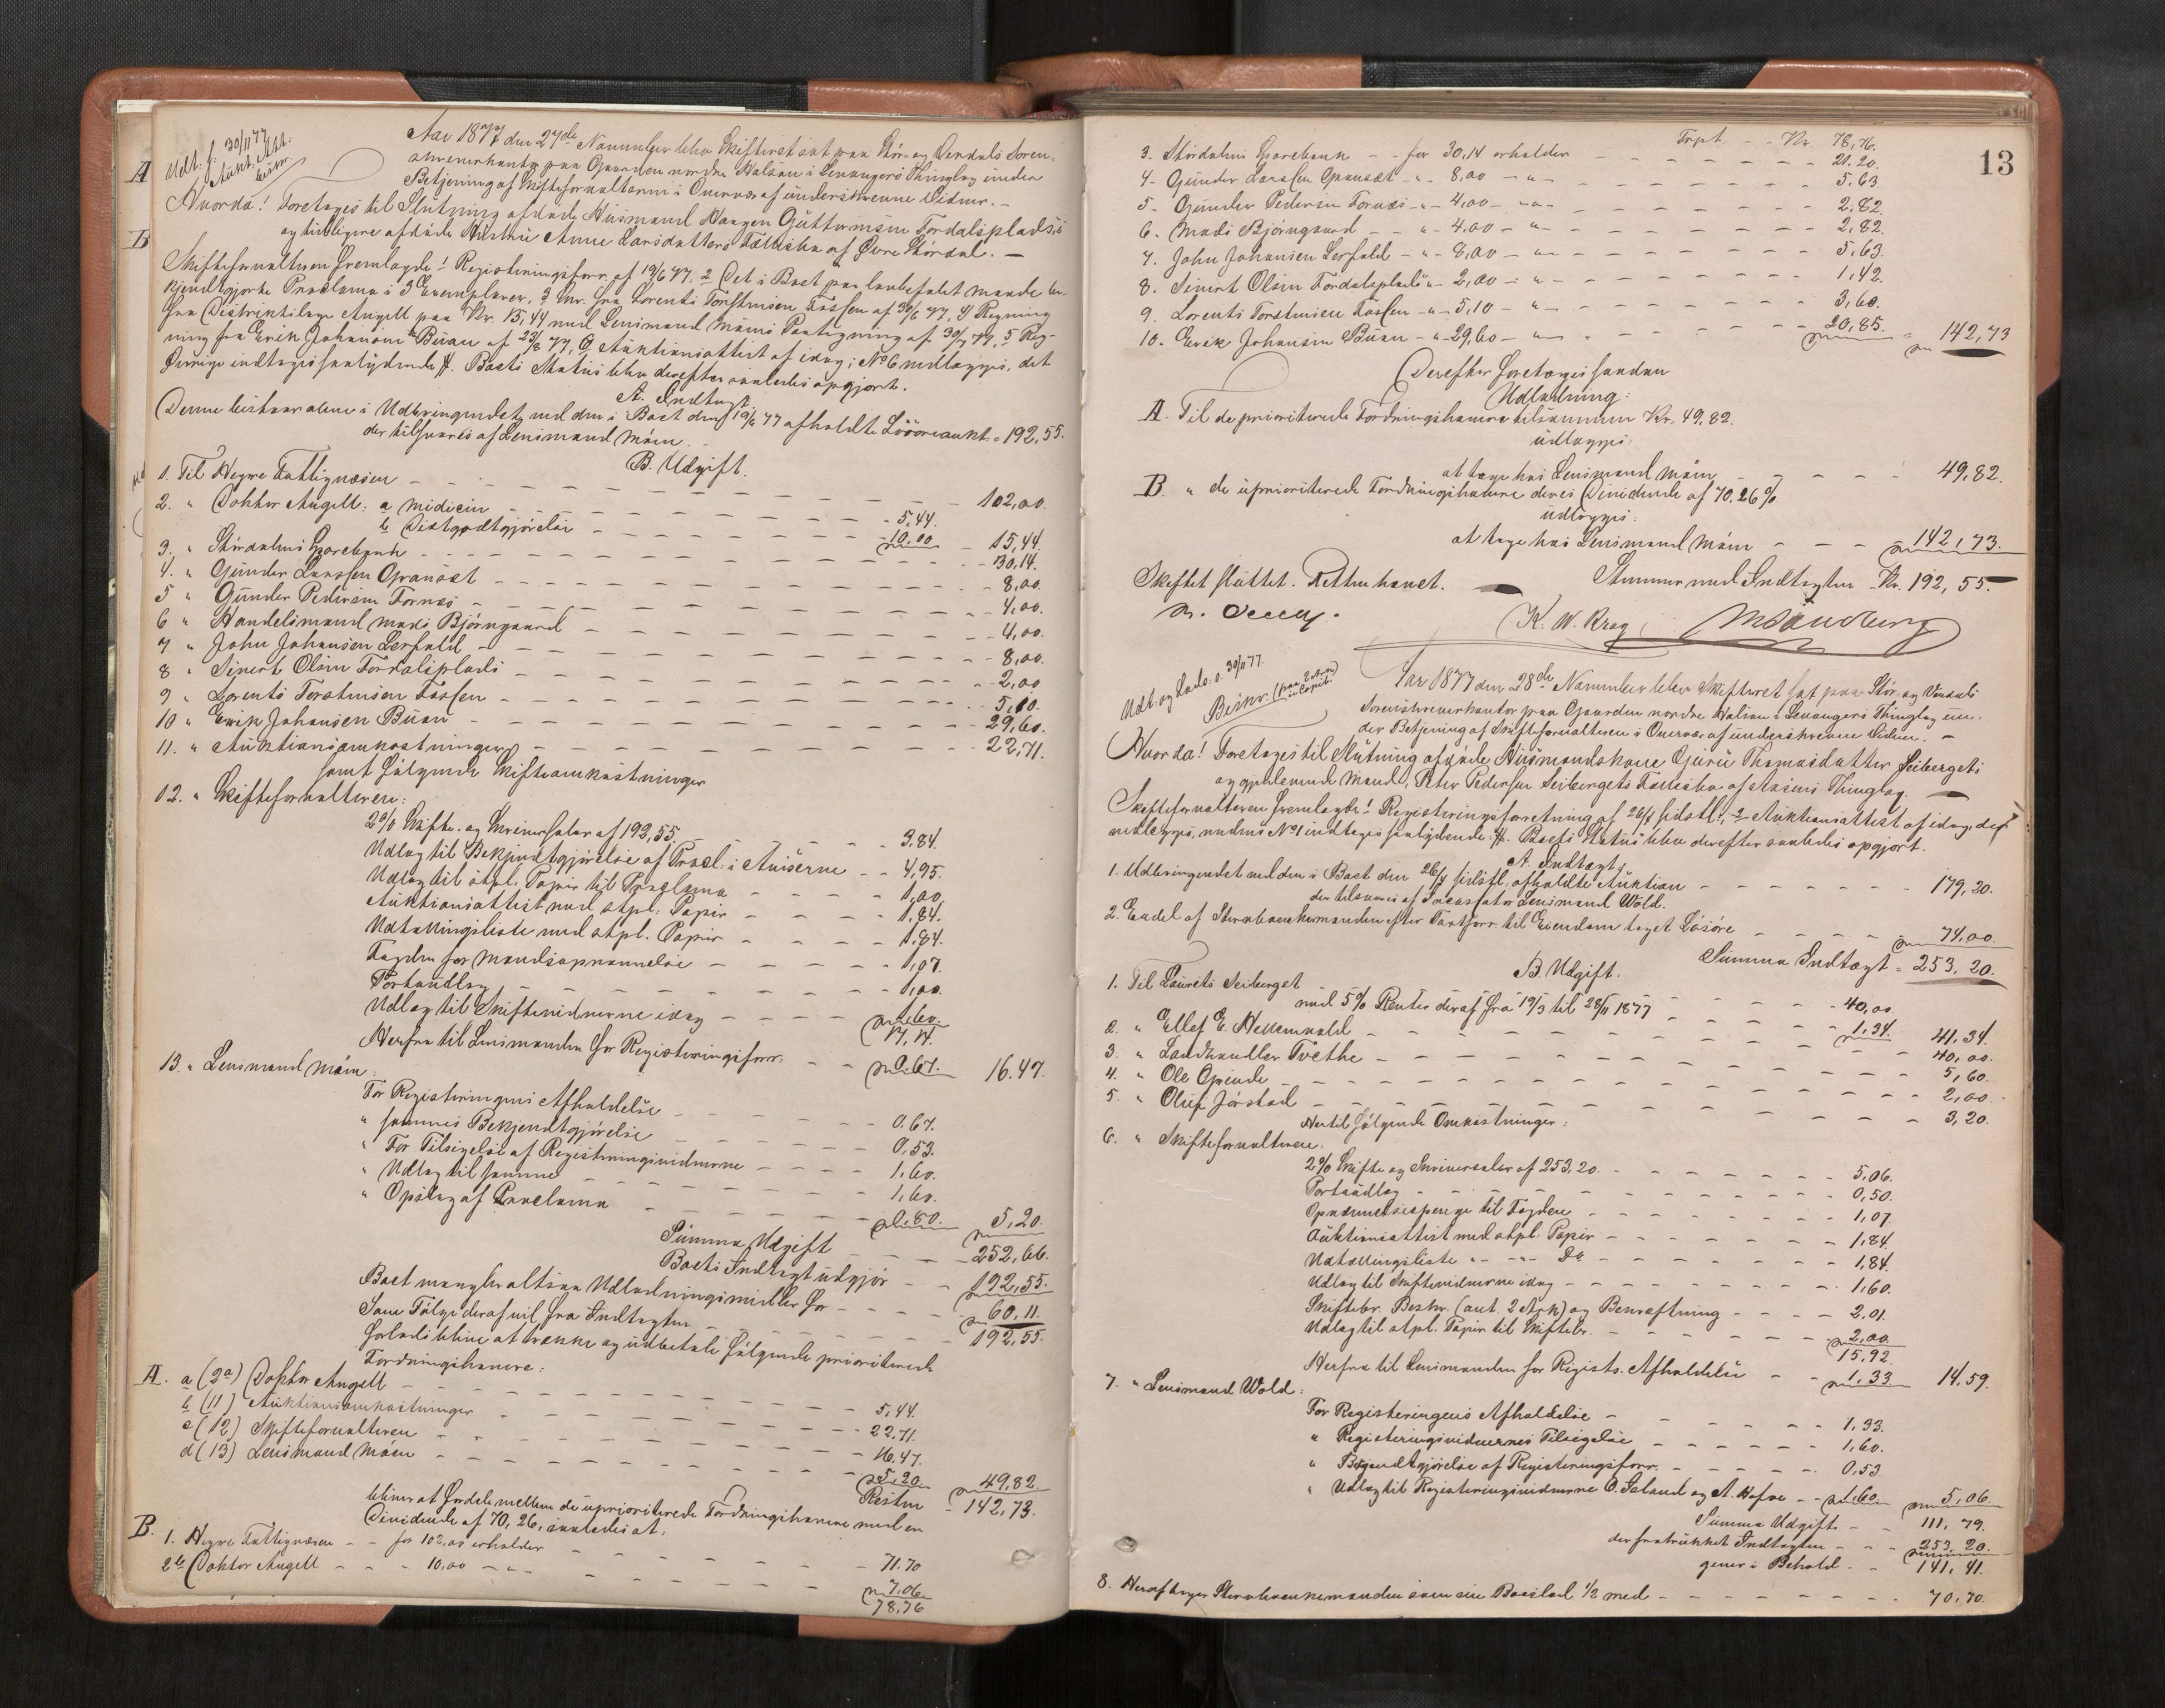 A
Udt. f. 30/11 77
Aukt. Att:
Aar 1877 den 27de November blev Skifteret sat paa Stör- og Verdals Soren-
skriverkontor paa Gaarden nordre Halsan i Levangers Thinglag under
Betjening af Skifteforvalteren i Overvær af underskrevne Vidner. -
Hvorda! Foretoges til Slutning afdöde Husmand Haagen Guttormsen Fordalsplads's
og tidligere afdöde Hustru Anne Larsdatters Fællesbo af Övre Stördal. -
B
Skifteforvalteren fremlagde 1 Registreringsforr. af 19/6 77. 2 Det i Boet paa lovbefalet Maade be-
kjendtgjorte Proclama i 3 Exemplarer, 3 Skr. fra Lorents Torstensen Fossen af 30/6 77, 4 Regning
fra Distriktslæge Angell paa Kr. 15,44 med Lensmand Möins Paategning af 30/7 77, 5 Reg-
ning fra Erik Johansen Buan af 23/8 77, 6 Auktionsattest af idag; No 6 vedlægges, det
Övrige indtages saalydende #. Boets Status blev derefter saaledes opgjort.
A. Indtægt.
Denne bestaar alene i Udbringendet ved den i Boet den 19/6 77 afholdte Lösöreaukt. = 192,55.
der tilsvares af Lensmand Möin.
B. Udgift.
1. Til Hegre Fattigvæsen - - - 102,00.
2. " Doktor Angell: a Medicin - - 5,44.
b Distgodtgjörelse - - 10,00 - 15,44.
3. " Stördalens Sparebank - - - 30,14.
4. " Gunder Larssen Granöst - - - 8,00.
5 " Gunder Pedersen Fornes - - - 4,00.
6 " Handelsmand Mads Björngaard - - - 4,00.
7 " John Johansen Lerfald - - - 8,00.
8 " Sivert Olsen Fordalsplads - - - 2,00
9 " Lorents Torstensen Fossen - - - 5,10.
10 " Erik Johansen Buan - - - 29,60.
11. " Auktionsomkostninger - - - 22,71.
samt fölgende Skifteomkostninger
12. " Skifteforvalteren:
2% Skifte- og Skriversalær af 192,55 - - 3,84.
Udlæg til Bekjendtgjörelse af Procl. i Aviserne - - 4,95.
Udlæg til stpl. Papir til Proclama - - 1,00
Auktionsattest med stpl. Papir - - 1,84.
Udtællingsliste med stpl. Papir - - 1,84.
Fogden for Mandsopnævnelse - - 1,07.
Portoudlæg - - 1,00.
Udlæg til Skiftevidnerne idag - - 1,60.
17,14.
Herfra til Lensmanden for Registreringsforr. - - 0,67. 16.47.
13. " Lensmand Möin:
For Registreringens Afholdelse - - 0.67.
" sammes Bekjendtgjörelse - - 0,53.
" For Tilsigelse af Registreringsvidnerne - - 1,60.
" Udlæg til samme - - 1,60.
" Opslag af Proclama - - 0.80. 5,20.
Summa Udgift - - 252,66.
Boets Indtægt udgjör - - 192,55.
Boet mangler altsaa Udlodningsmidler for - - 60,11.
Som Fölge deraf vil fra Indtægten - - 192,55.
forlods blive at trække og udbetale fölgende prioriterede
Fordringshavere:
A. a (2a) Doktor Angell - - 5,44.
b (11) Auktionsomkostninger - - 22,71.
c (12) Skifteforvalteren - - 16,47.
d (13) Lensmand Möin - - 5,20. 49,82.
Resten - 142,73.
bliver at fordele mellem de uprioriterede Fordringshavere med en
Dividende af 70,26, saaledes at:
B. 1. Hegre Fattigvæsen - - for 102,00 erholder - - 71.70
2b Doktor Angell - - 10,00 - " - - - 7,06.
78,76
13
Trpt. - - Kr. 78,76.
3. Stördalens Sparebank - - for 30,14 erholder - - 21.20.
4- Gunder Larssen Granöst - " - 8,00 - " - - - 5.63.
5- Gunder Pedersen Fornes - " - 4,00 - " - - - 2.82.
6. Mads Björngaard - - " - 4,00 - " - - - 2,82.
7. John Johansen Lerfald - " - 8,00 - " - - - 5,63.
8. Sivert Olsen Fordalsplads - " - 2,00 - " - - - 1,42.
9. Lorents Torstensen Fossen - " - 5,10 - " - - - 3,60.
10. Erik Johansen Buan - " - 29,60 - " - - - 20,85. = 142,73
Derefter foretoges saadan
Udlodning:
A. Til de prioriterede Fordringshavere tilsammen Kr. 49,82.
udlægges:
at tage hos Lensmand Möin - - - 49,82.
B. " de uprioriterede Fordringshavere deres Dividende af 70.26%
udlægges:
at tage hos Lensmand Möin - - - 142,73.
Stemmer med Indtægten - Kr. 192,55.
Skiftet sluttet. Retten hævet.
K. W. Krog. MSandberg
Udt. og Lods. o. 30/11 77.
Beskr. (paa 2 Ark)
Aar 1877 den 28de November blev Skifteret sat paa Stör- og Verdals
Sorenskriverkontor paa Gaarden nordre Halsan i Levangers Thinglag un-
der Betjening af Skifteforvalteren i Overvær af underskrevne Vidner. -
Hvorda! Foretoges til Slutning afdöde Husmandskone Guru Thomasdatter Seibergets
og gjenlevende Mand, Peter Pedersen Seibergets Fællesbo af Aasens Thinglag.
Skifteforvalteren fremlagde 1 Registreringsforretning af 26/4 sidstl., 2 Auktionsattest af idag, der
vedlægges, medens No 1 indtages saalydende: #. Boets Status blev derefter saaledes opgjort.
A. Indtægt.
1. Udbringendet ved den i Boet den 26/4 sidstl. afholdte Auktion - - - 179,20.
der tilsvares af Incassator Lensmand Wold.
2. Endel af Stervboenkemanden efter Taxtforr. til Eiendom taget Lösöre - - 74,00.
Summa Indtægt = 253,20.
B. Udgift.
1. Til Laurits Seiberget - - 40,00.
med 5% Renter deraf fra 19/3 til 28/11 1877 - - 1,34. 41,34.
2. " Ellef E. Hellemvold - - - 40,00.
3. " Landhandler Tvethe - - - 5,60.
4. " Ole Opende - - - 2,00.
5. " Oluf Jörstad - - - 3,20.
Hertil fölgende Omkostninger:
6. " Skifteforvalteren:
2% Skifte og Skriversalær af 253,20 - - 5,06.
Portoudlæg - - 0,50.
Opnævnelsespenge til Fogden - - 1,07.
Auktionsattest med stpl. Papir - - 1,84.
Udtællingsliste " - " - Do - - 1,84.
Udlæg til Skiftevidnerne idag - - 1,60.
Skiftebr. Beskr. (ant. 2 Ark) og Bekræftning - - 2,01.
Udlæg til stpl. Papir til Skiftebr. - - 2,00
15,92.
Herfra til Lensmanden for Registr. Afholdelse - - 1,33. 14.59.
7. " Lensmand Wold:
For Registreringens Afholdelse - - 1,33.
" Registreringsvidnernes Tilsigelse - - 1,60.
" Bekjendtgjörelse af Registreringsforr. - - 0,53.
" Udlæg til Registreringsvidnerne O. Geland og A. Hofve - - 1,60. 5,06.
Summa Udgift - - 111,79.
der fratrukket Indtægten - - 253,20.
giver i Behold - - 141,41.
8. Heraf tager Stervboenkemanden som sin Boeslod 1/2 med - - - 70,70.